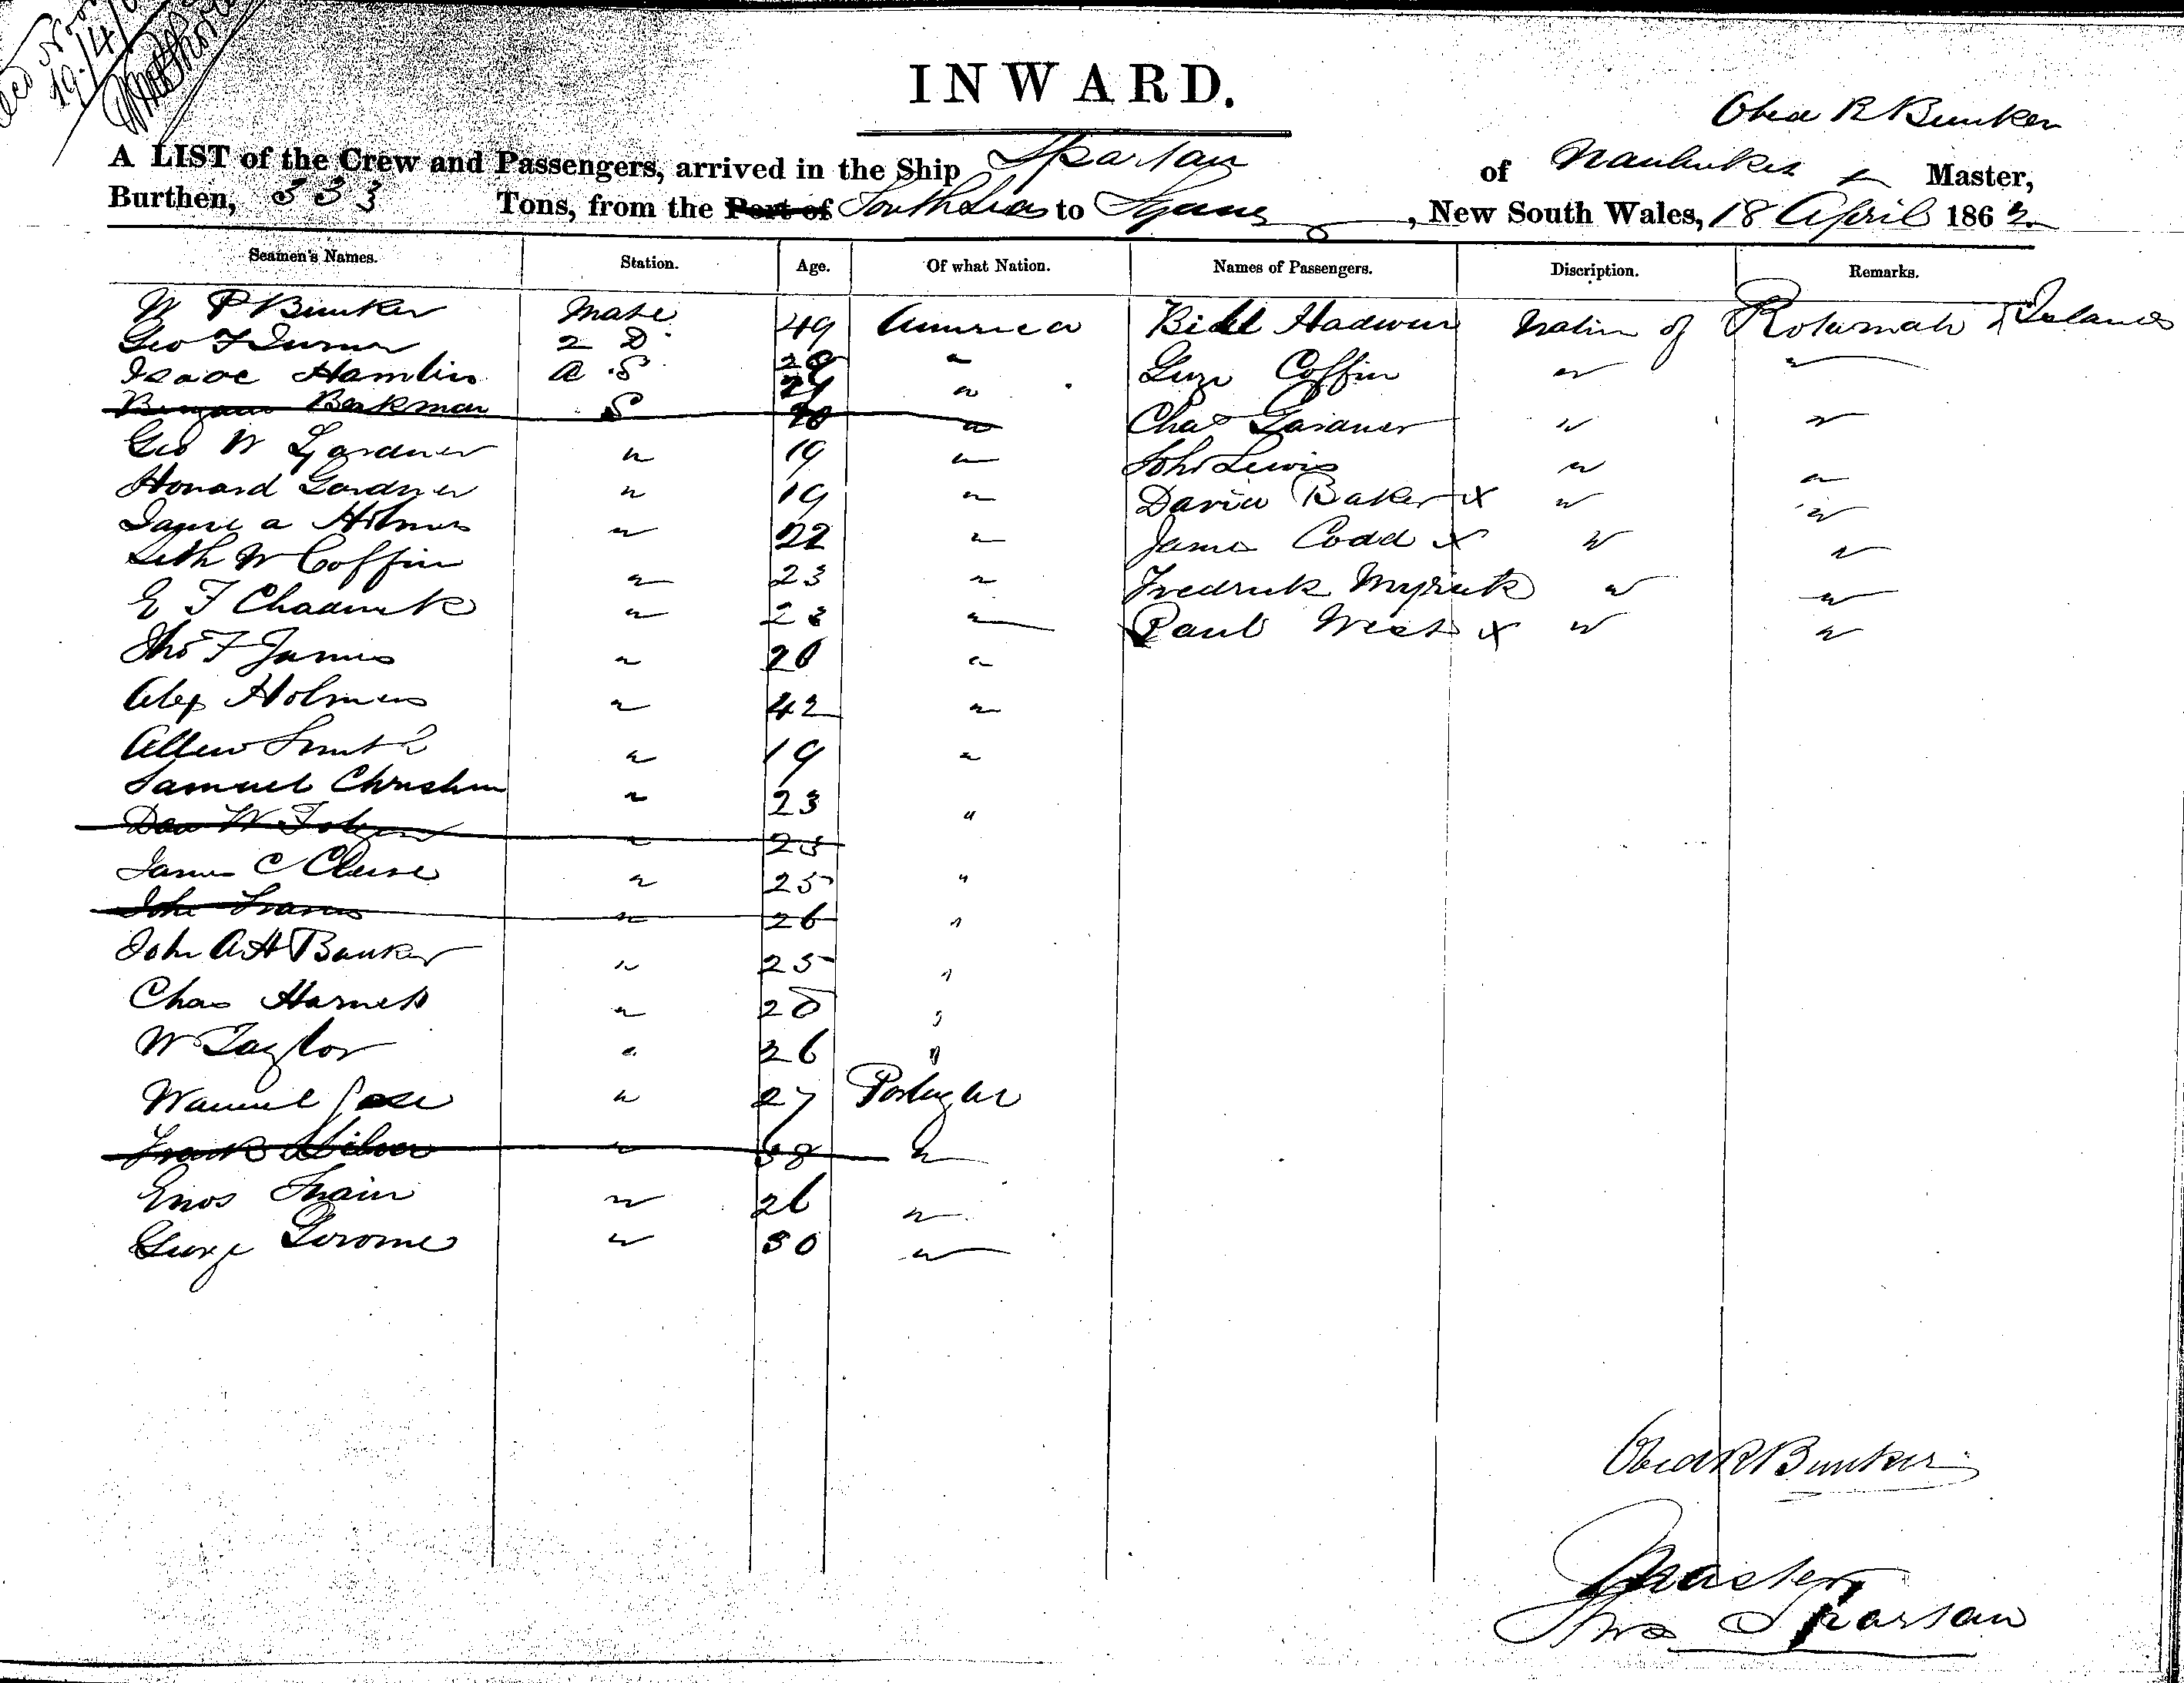 19/4/
INWARD.
Obed R Bunker
A LIST of the Crew and Passengers, arrived in the Ship Spartan of Nantucket Master,
Burthen, 333 Tons, from the Port of South Seas to Sydney, New South Wales, 18 April 1862
Seamen's Names. Station. Age. Of what Nation. Names of Passengers. Discription. Remarks.
W P Bunker Mate 49 America Bill Hadwen Native of Rotumah Islands
Geo F Turner 2 D 28 " George Coffin " "
Isaac Hamlin a S " Chas Gardner " "
Beekman S "
Geo W Gardner " 19 " John Lewis " "
Howard Gardner " 19 " David Baker x " "
a Holmes " 22 " James Codd x " "
Seth W Coffin " 23 " Fredrick Myrick " "
E F Chadwick " 23 " Paul West x " "
Tho F James " 26 "
Alex Holmes " 42 "
Allen Smith " 19 "
Samuel " 23 "
W Folger " 25
James C Cluse " 25 "
John Francis " 26 "
John A H Bunker " 25 "
Chas " 28 "
W Taylor " 26 "
Manuel Jose " 27 Portugal
Frank Silver " 38 "
Enos " 26 "
George Gerome " 30 "
Obed R Bunker
Master
Spartan